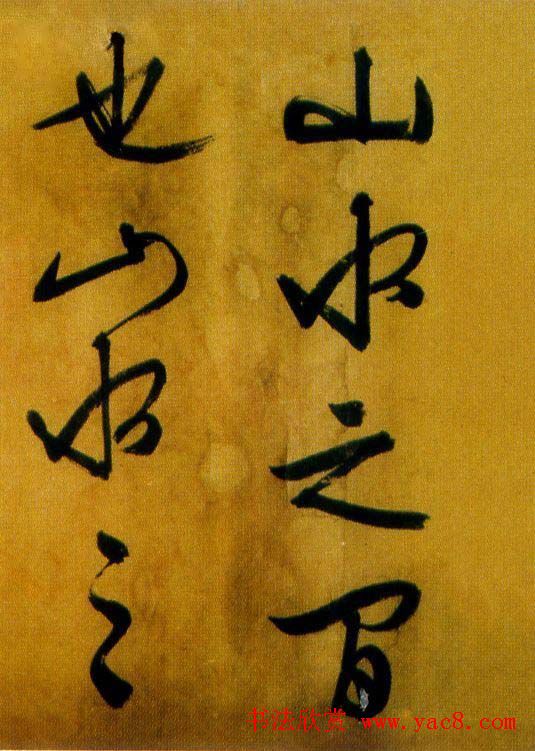 山水之間
也山水之
书法欣赏 www.yac8.com